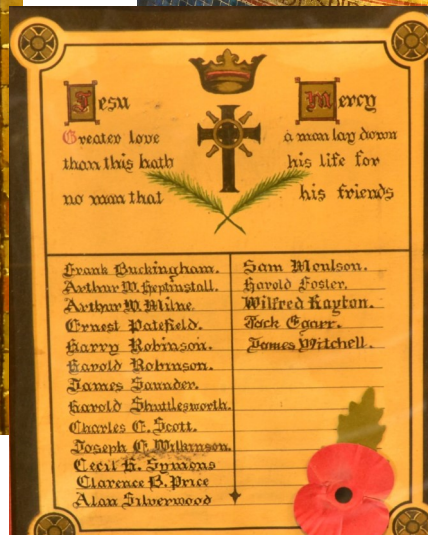 Jesu Mercy
Greater love a man lay down
than this hath his life for
no man that his friends
Frank Buckingham.
Arthur W. Heptinstall.
Arthur W. Milne.
Ernest Patefield.
Harry Robinson.
Harold Robinson.
James Saunder.
Harold Shuttlesworth.
Charles E. Scott.
Joseph E. Wilkinson.
Cecil H. Symons
Clarence B. Price
Alan Silverwood
Sam Moulson.
Harold Foster.
Wilfred Rayton.
Jack Egarr.
James Mitchell.